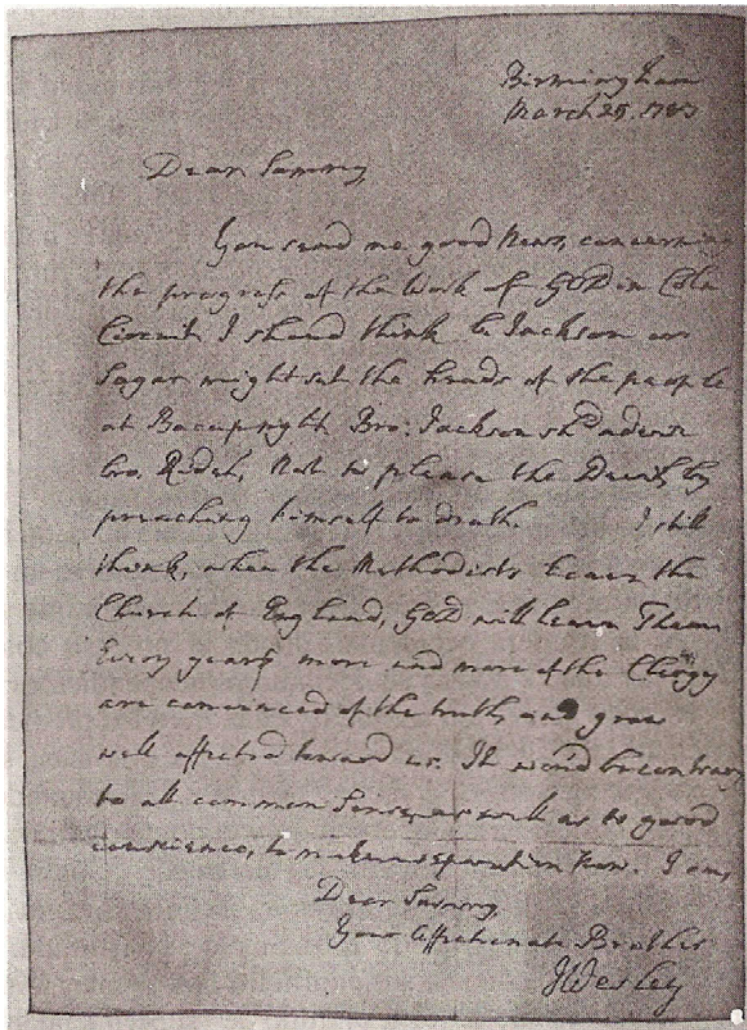 Birmingham
March 25. 1783
Dear Sammy,
You send me good News, concerning
the progress of the Work of GOD in Coln
Circuit. I should think Br Jackson or
Sagar might set the heads of the people
at Bacup right. Bro: Jackson shd advise
bro. Ridel, not to please the Devil, by
preaching himself to death. I still
think, when the Methodists leave the
Church of England, GOD will leave Them
Every year more and more of the Clergy
are convinced of the truth, and grow
well affected toward us. It wou'd be contrary
to all common Sense, as well as to good
conscience, to make a separation now. I am,
Dear Sammy,
Your Affectionate Brother
JWesley